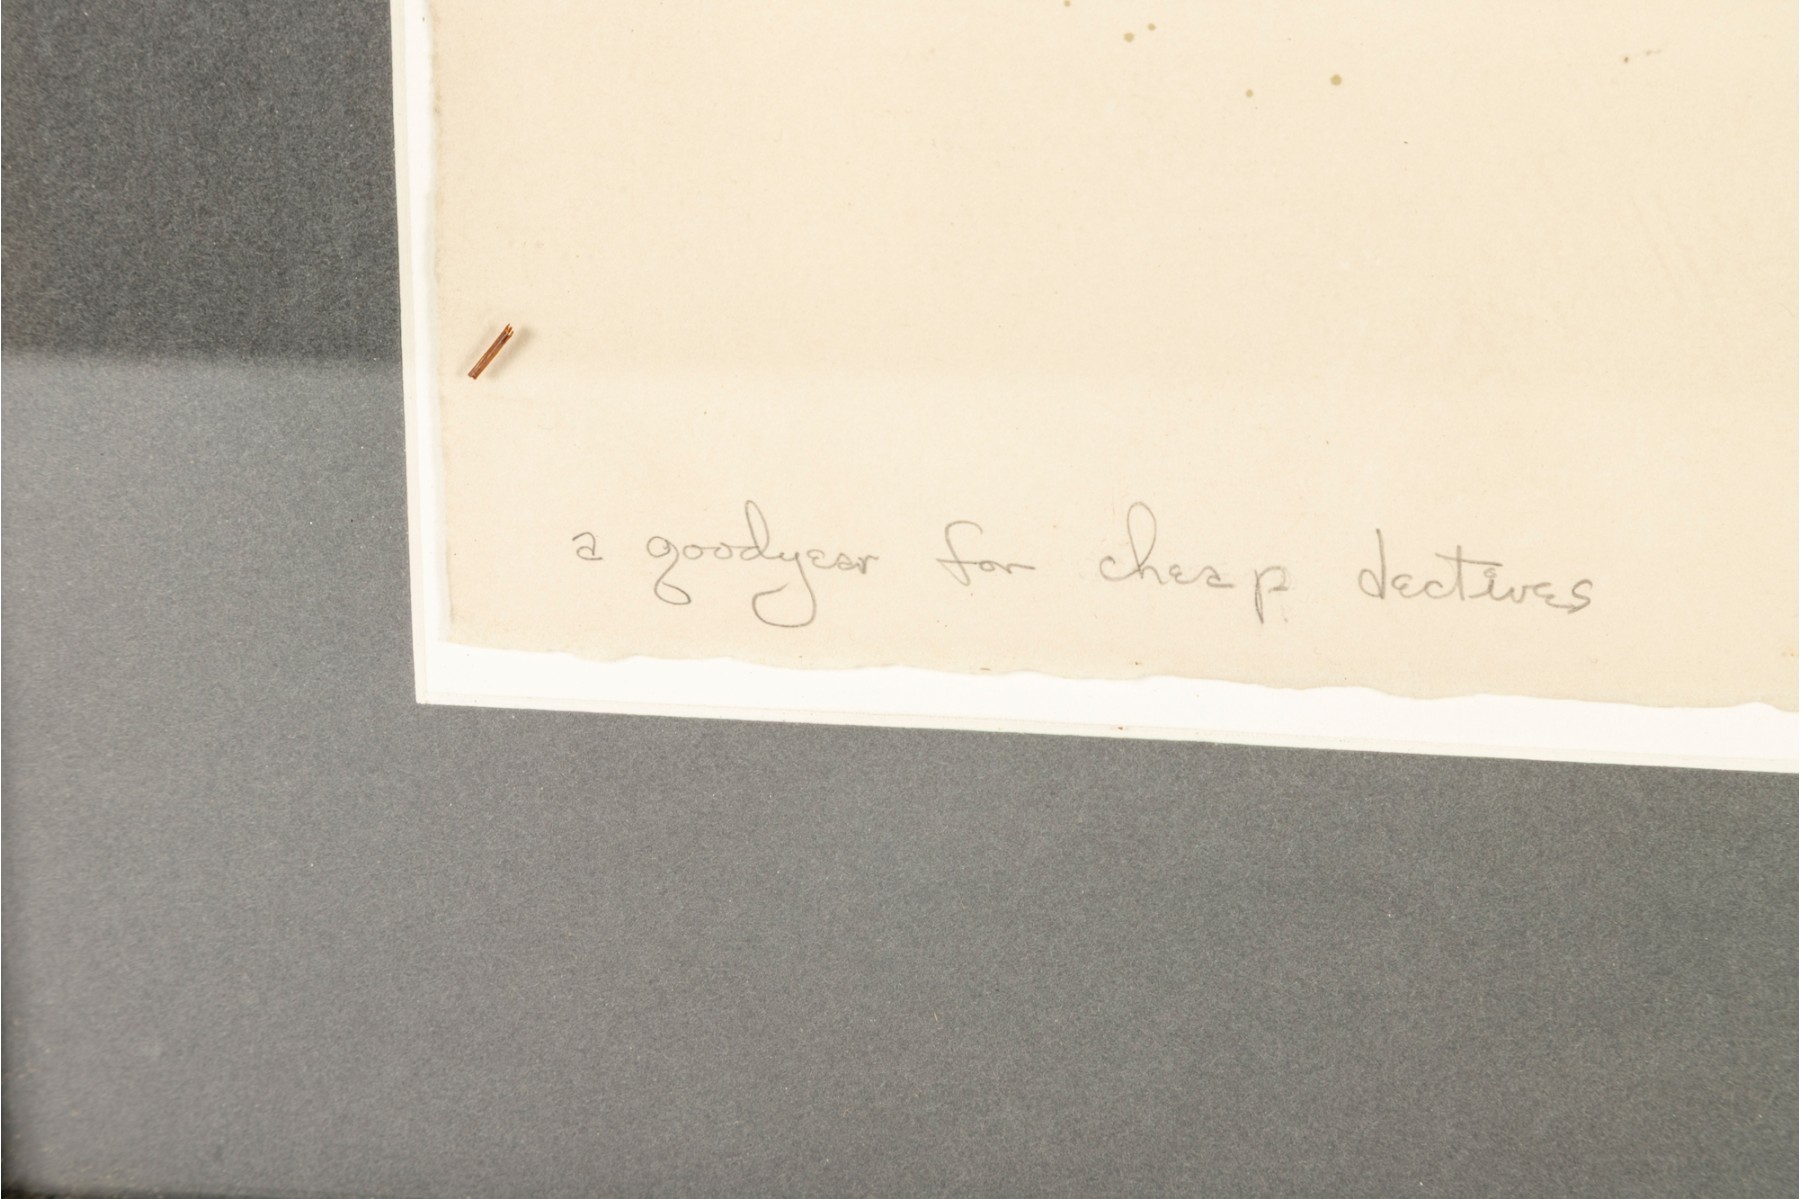 a goodyear for cheap dectives